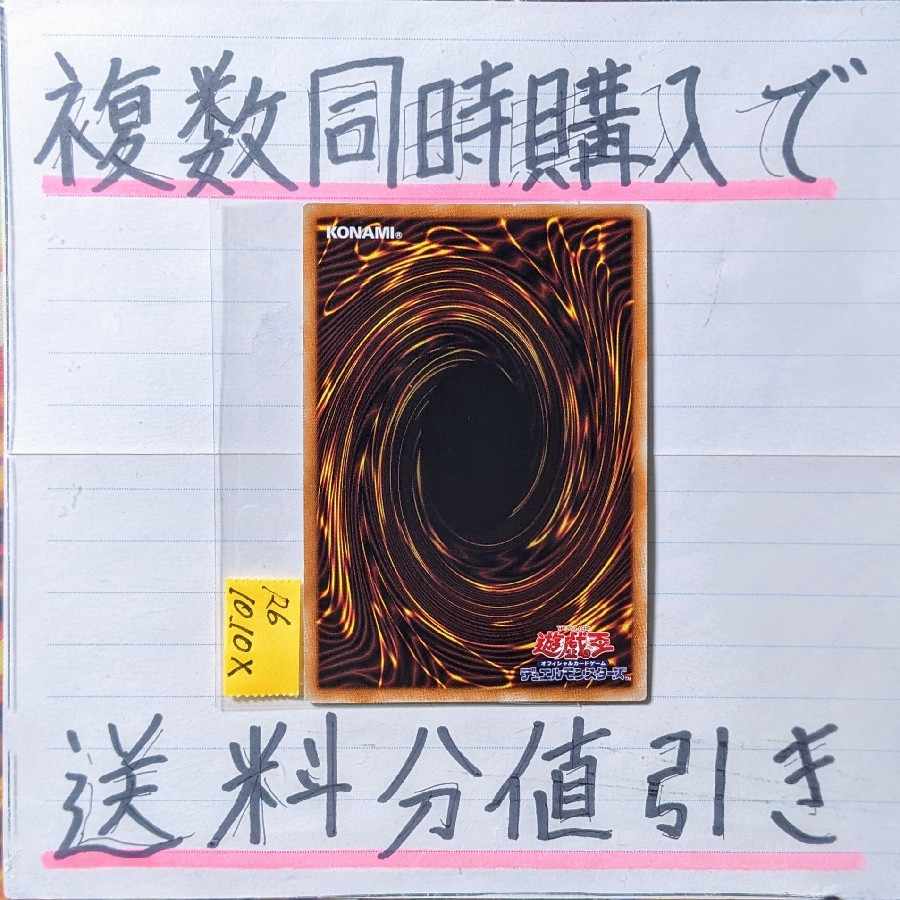 複数同時購入で
KONAMI®
遊戯王
オフィシャルカードゲーム
デュエルモンスターズ™
送料分値引き